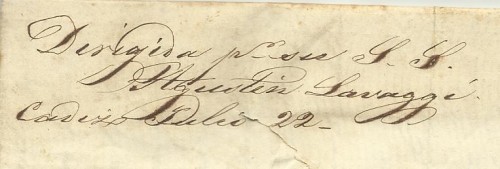 Dirigida pr. su S. S.
Agustin Lavaggi.
Cadiz Julio 22-